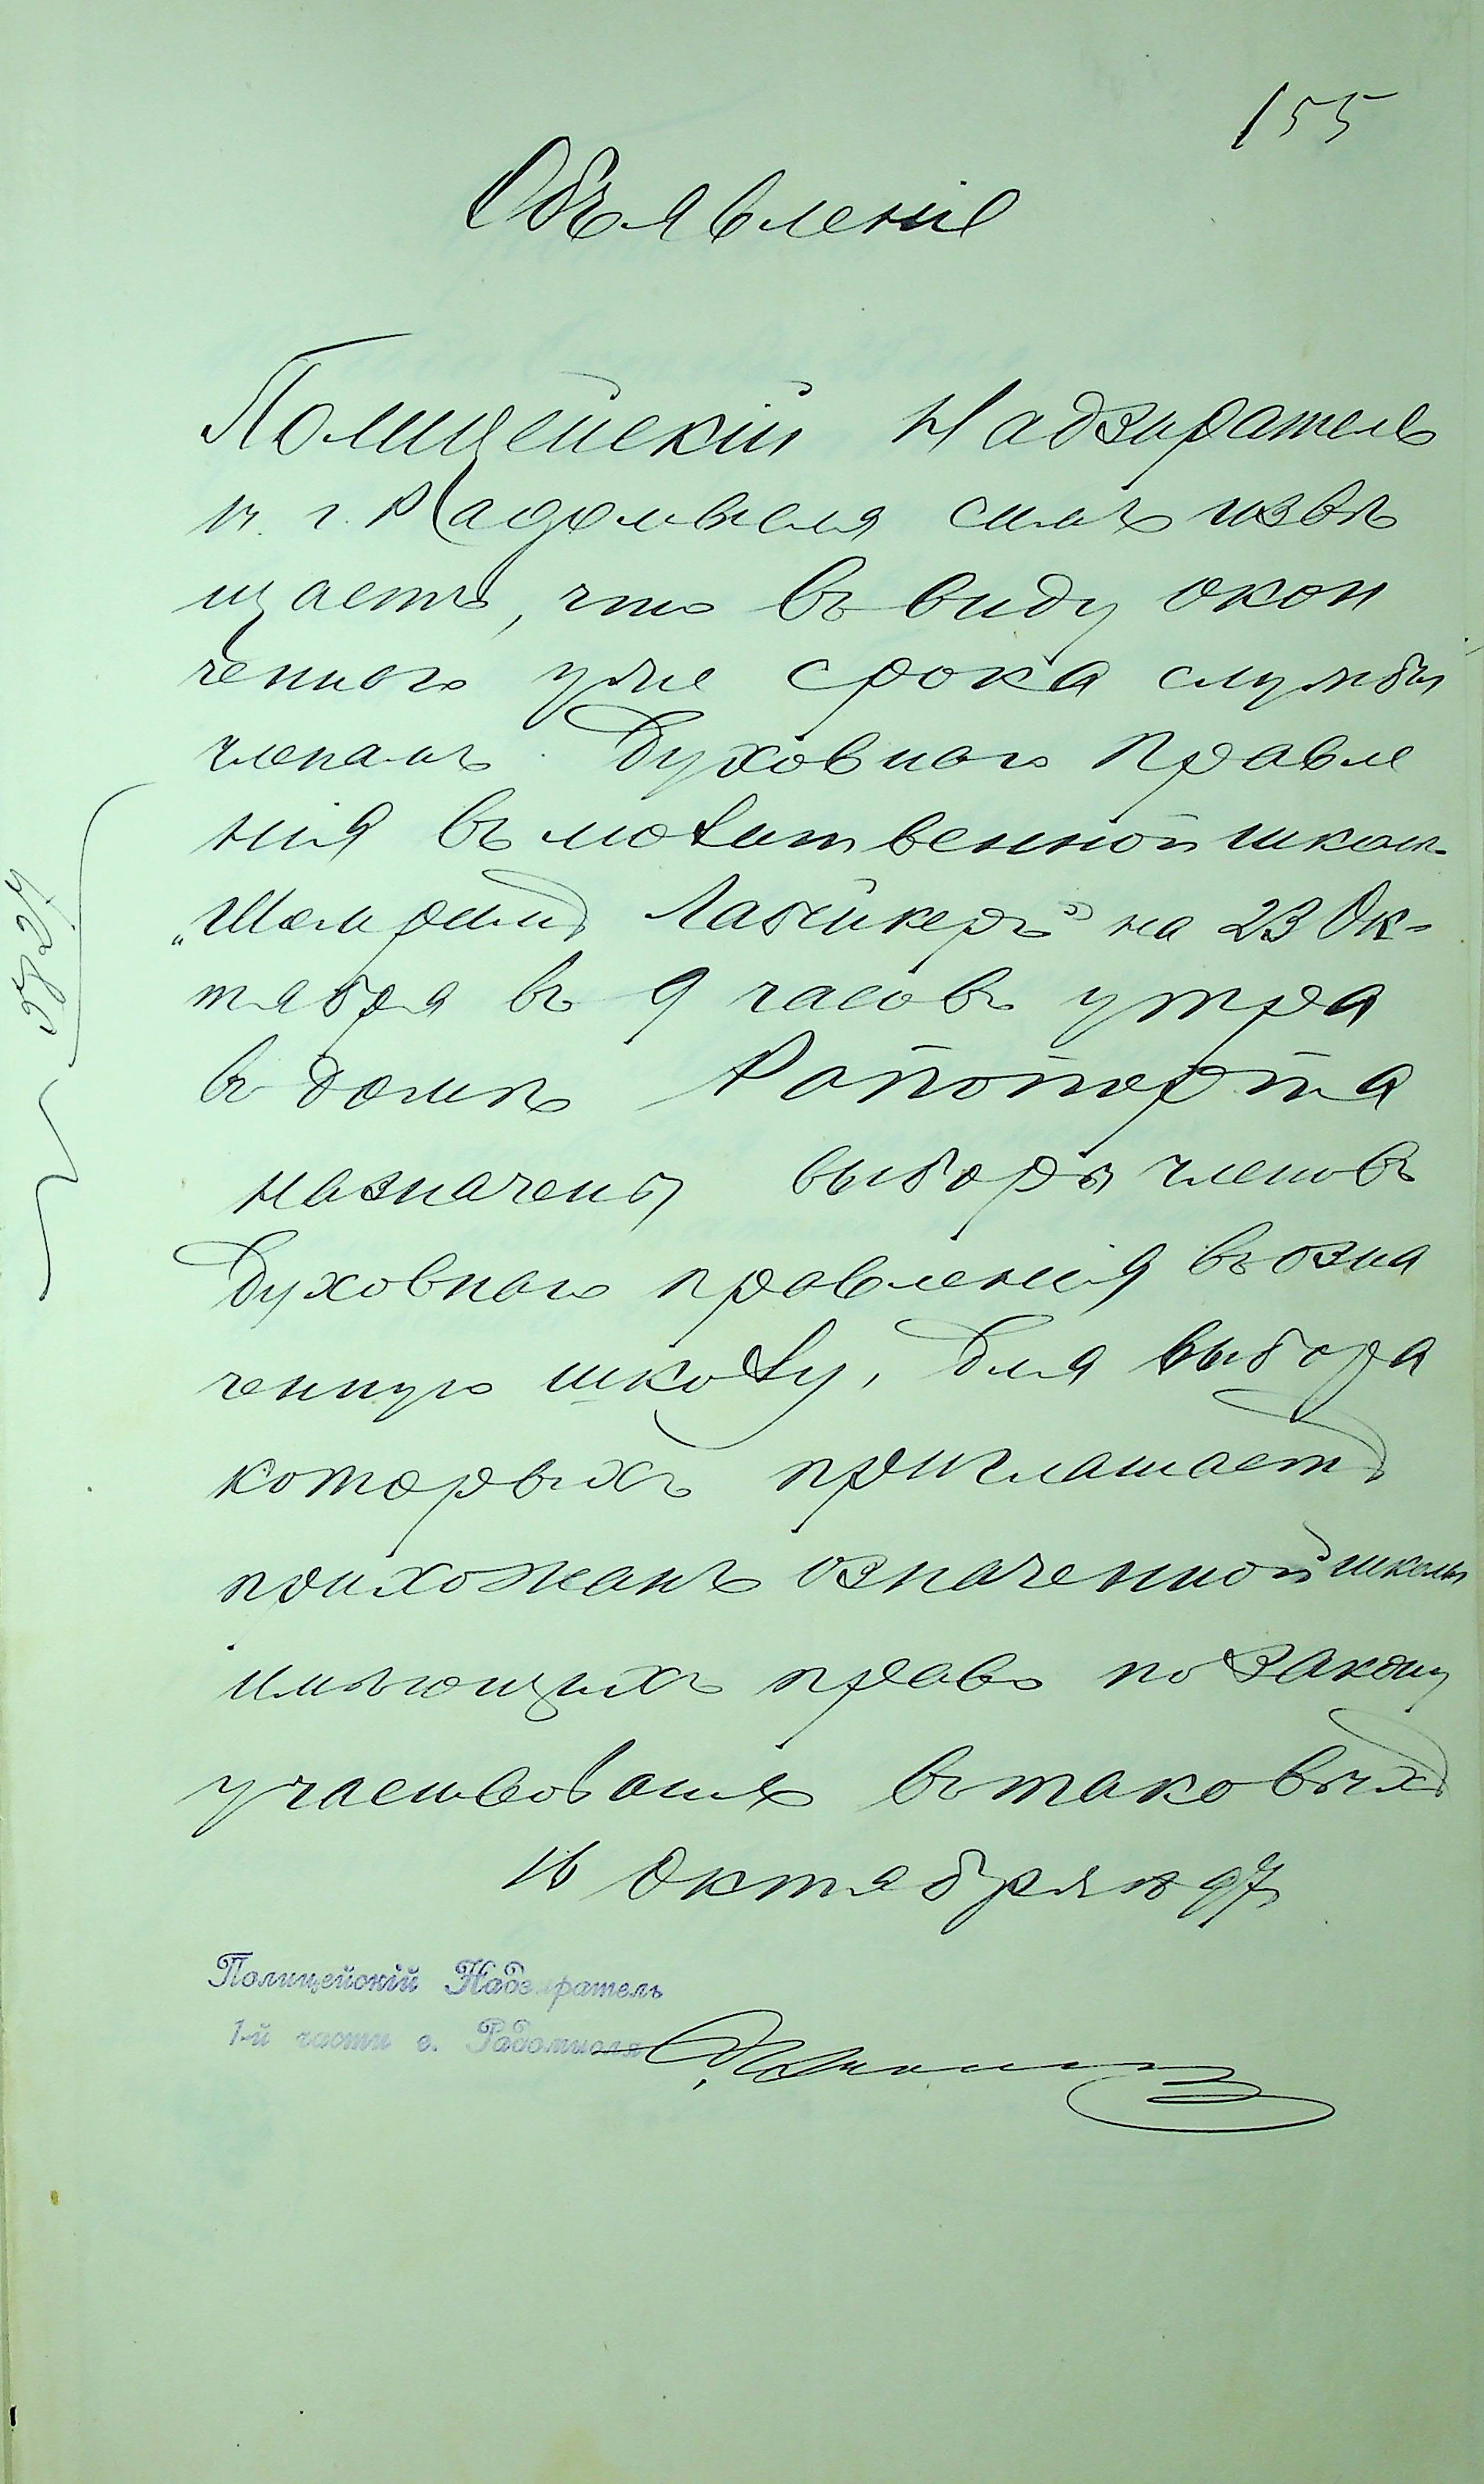 155
Объявленіе
Полицейскій Надзиратель
1 ч. г. Радомысля симъ извѣ
щаетъ, что въ виду окон
ченнаго уже срока службы
членамъ Духовнаго Правле
нія въ молитвенной школѣ
на 23 Ок-
тября въ 9 часовъ утра
въ домѣ Рапопорта
назначены выборы членовъ
Духовнаго правленія въ озна
ченную школу, для выбора
которыхъ приглашаетъ
прихожанъ означенной школы
имѣющихъ право по закону
участвованія въ таковыхъ
16 Октября 97
Полицейскій Надзиратель
1-й части г. Радомысля